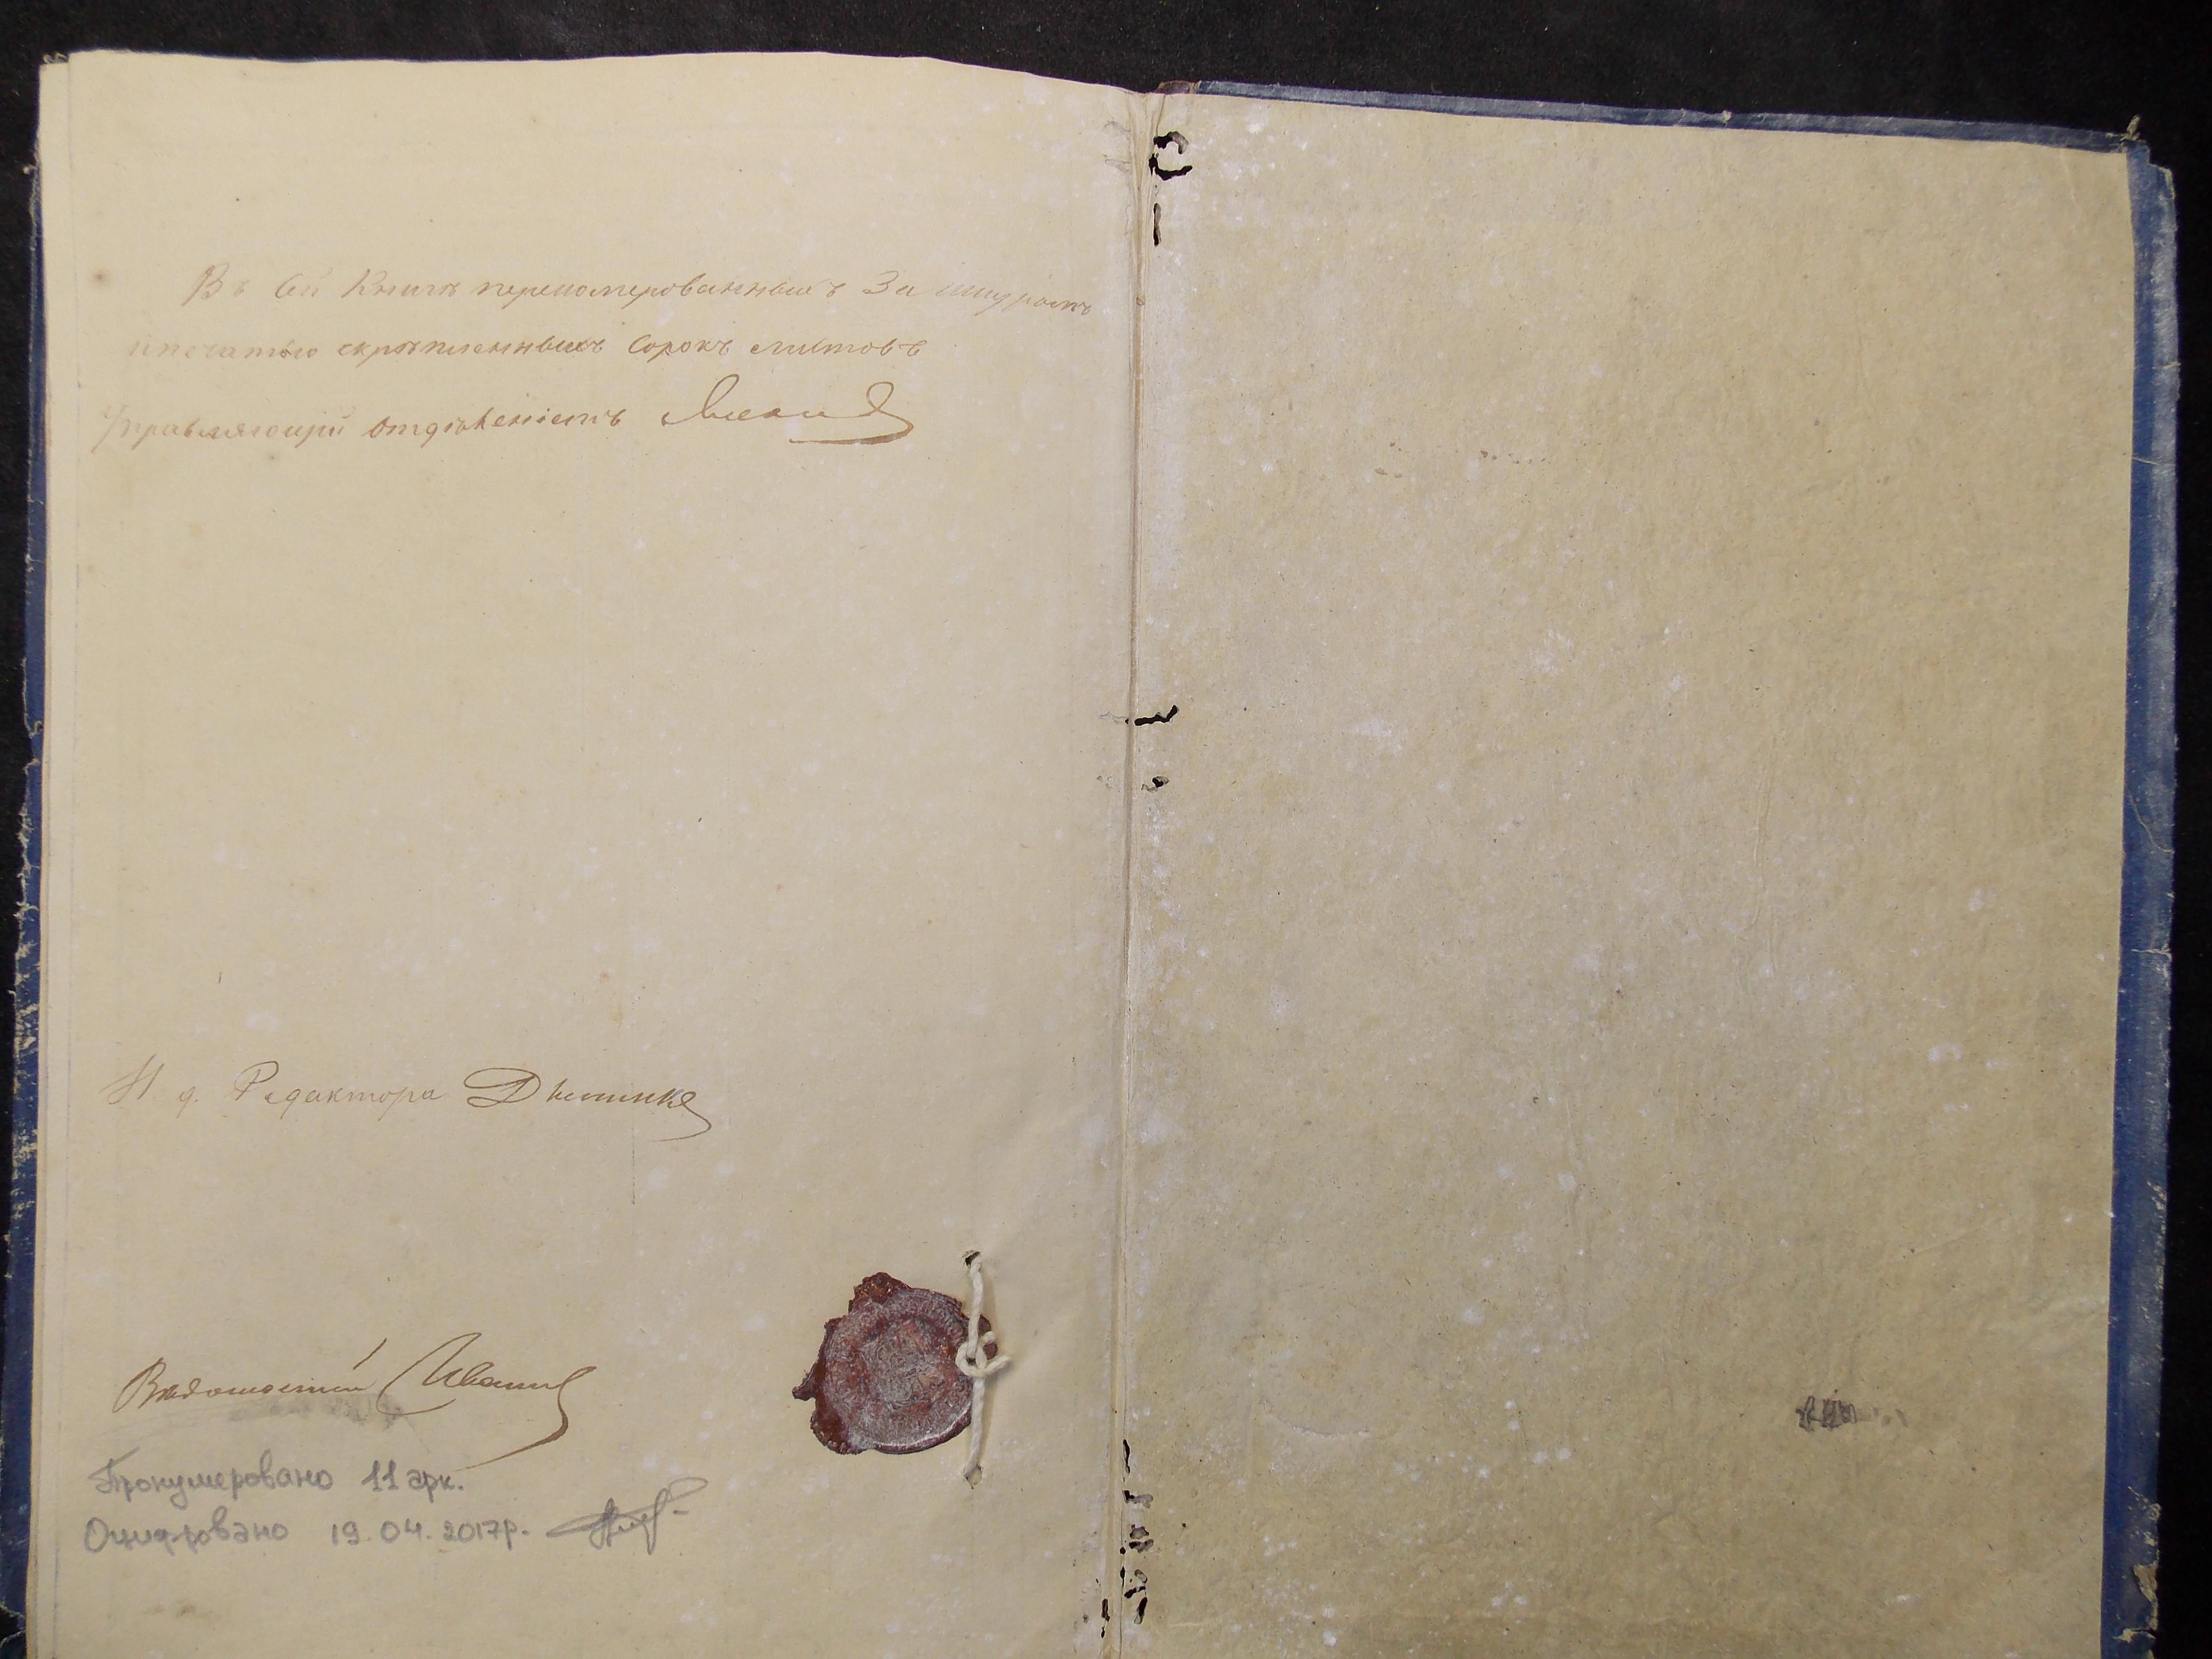 Въ сей Книгѣ перенумерованныхъ За шнуромъ
и печатью скрѣпленныхъ Сорокъ листовъ
Управляющій Отдѣленіемъ
И. д. Редактора
Иванов
Пронумеровано 11 арк.
Оцифровано 19.04.2017р.